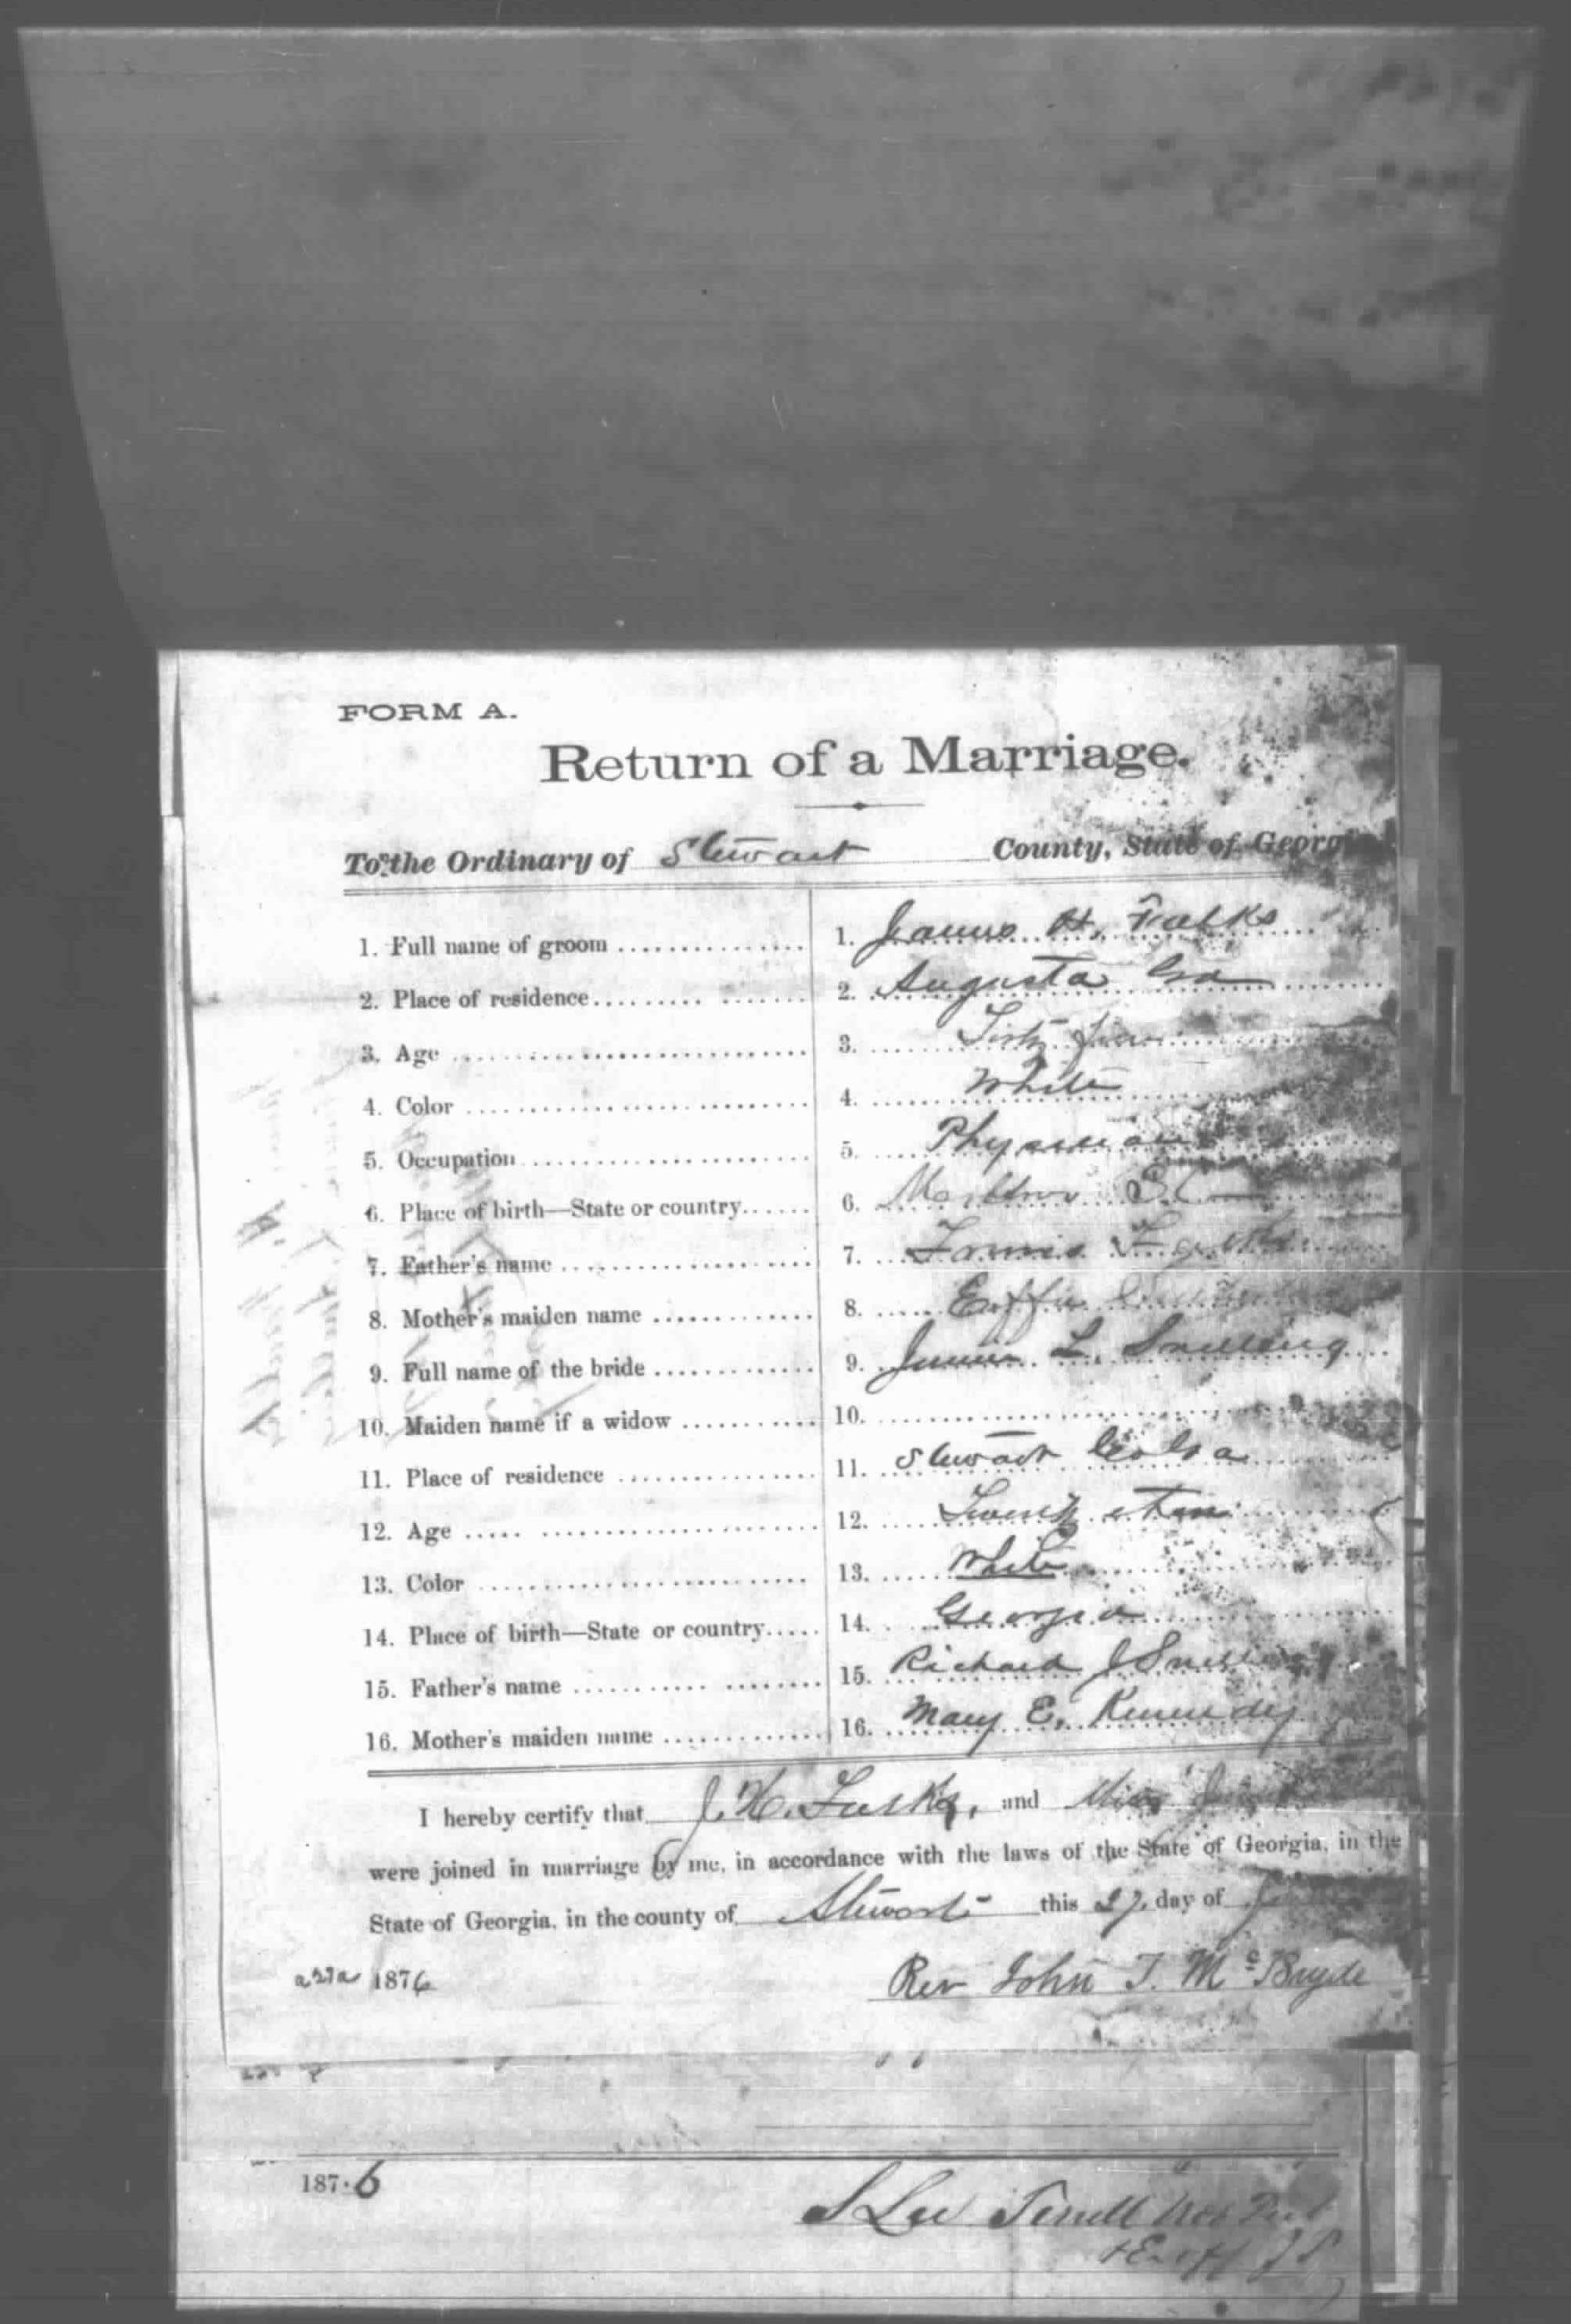 FORM A.
Return of a Marriage.
To the Ordinary of Stewart County, State of Georgia
1. Full name of groom 1. James H. Fulks
2. Place of residence 2. Augusta Ga
3. Age 3.
4. Color 4. White
5. Occupation 5. Physician
6. Place of birth—State or country 6. S.C
7. Father's name 7.
8. Mother's maiden name 8. Effie
9. Full name of the bride 9. Jennie L. Snelling
10. Maiden name if a widow 10.
11. Place of residence 11. Stewart Co Ga
12. Age 12. Twenty
13. Color 13. White
14. Place of birth—State or country 14. Georgia
15. Father's name 15. Richard J Snelling
16. Mother's maiden name 16. Mary E. Kennedy
I hereby certify that J. H. Fulks, and Miss
were joined in marriage by me, in accordance with the laws of the State of Georgia, in the
State of Georgia, in the county of Stewart this 27. day of
1876 Rev John T. McBryde
1876
S Lee Terrell